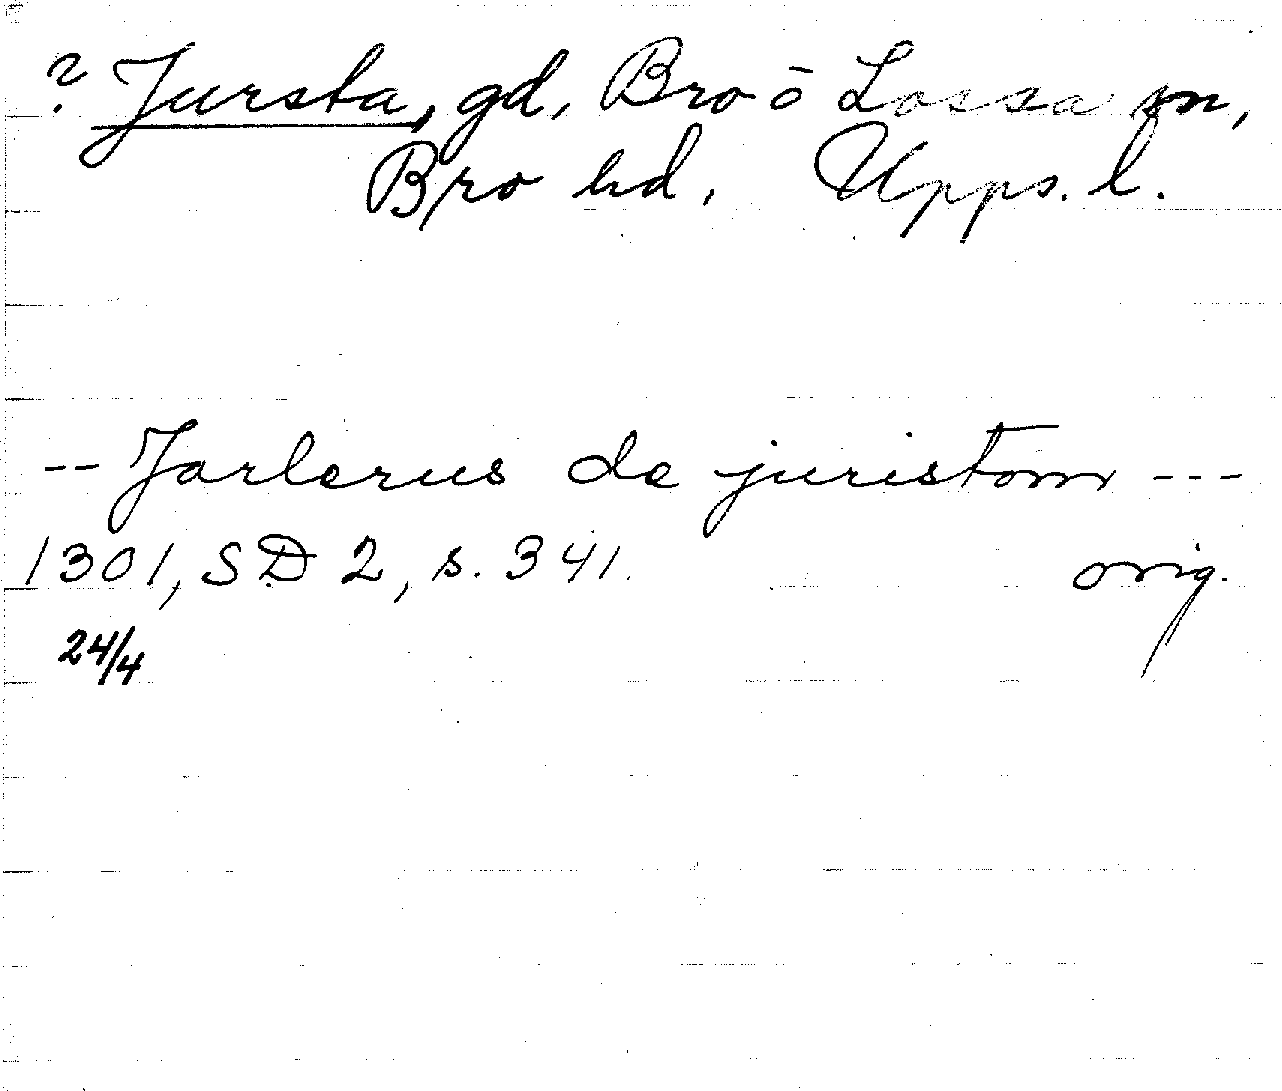 ? Jursta, gd, Bro o Lossa sn,
Bro hd, Upps. l.
-- Jarlerus de juristom ---
1301, SD 2, s. 341. orig.
24/4